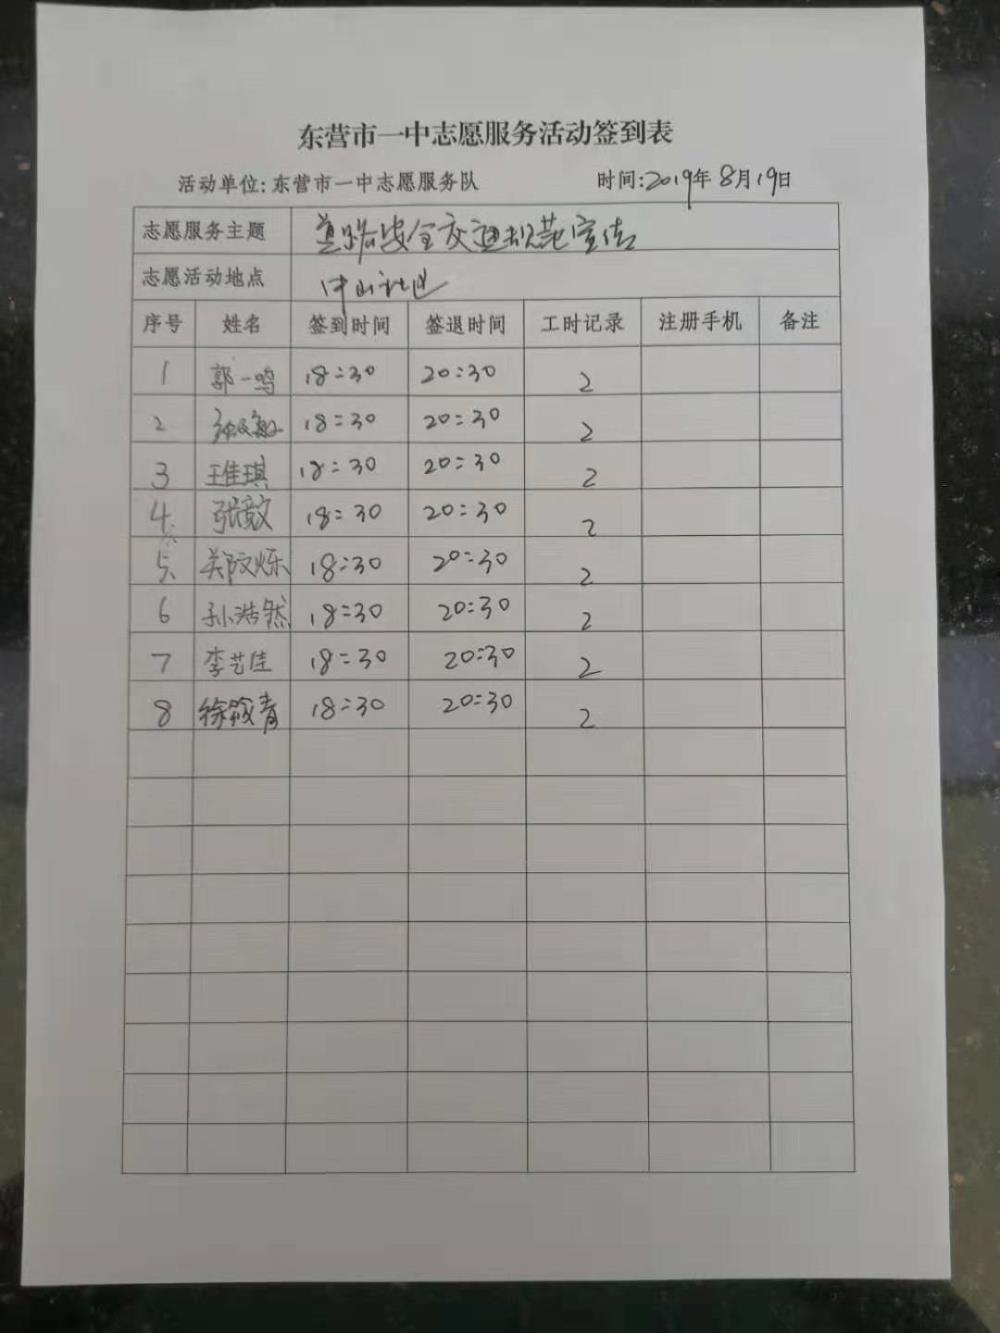 东营市一中志愿服务活动签到表
活动单位:东营市一中志愿服务队 时间:2019年8月19日
志愿服务主题 道路安全交通规范宣传
志愿活动地点 中山社区
序号 姓名 签到时间 签退时间 工时记录 注册手机 备注
1 郭一鸣 18:30 20:30 2
2 18:30 20:30 2
3 王佳琪 18:30 20:30 2
4 18:30 20:30 2
5 郑文烁 18:30 20:30 2
6 孙浩然 18:30 20:30 2
7 李艺佳 18:30 20:30 2
8 徐筱青 18:30 20:30 2